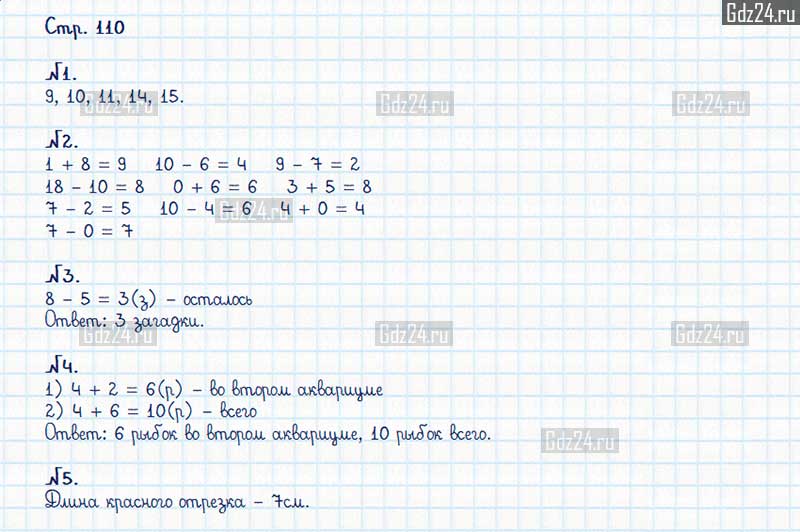 Gdz24.ru
Стр. 110
№1.
9, 10, 11, 14, 15.
Gdz24.ru Gdz24.ru Gdz24.ru
№2.
1 + 8 = 9 10 - 6 = 4 9 - 7 = 2
18 - 10 = 8 0 + 6 = 6 3 + 5 = 8
7 - 2 = 5 10 - 4 = 6 4 + 0 = 4
Gdz24.ru
7 - 0 = 7
№3.
8 - 5 = 3(з) - осталось
Ответ: 3 загадки.
Gdz24.ru Gdz24.ru Gdz24.ru
№4.
1) 4 + 2 = 6(р) - во втором аквариуме
2) 4 + 6 = 10(р) - всего
Ответ: 6 рыбок во втором аквариуме, 10 рыбок всего.
Gdz24.ru
№5.
Длина красного отрезка - 7см.